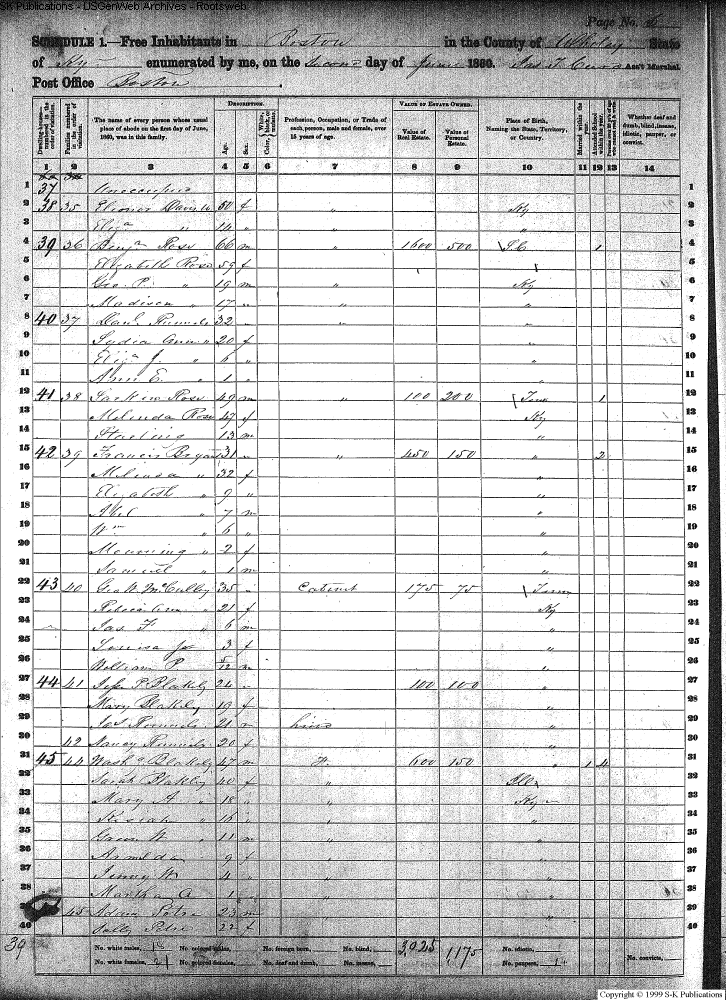 SK Publications - USGenWeb Archives - Rootsweb
Page No. 5
SCHEDULE 1.—Free Inhabitants in Boston in the County of Whitley State
of Ky enumerated by me, on the Second day of June 1860. Ass't Marshal
Post Office Boston
DESCRIPTION. VALUE OF ESTATE OWNED.
Dwelling-houses—numbered in the order of visitation.
Families numbered in the order of visitation.
The name of every person whose usual place of abode on the first day of June, 1860, was in this family.
Age.
Sex.
Color, White, black, or mulatto.
Profession, Occupation, or Trade of each person, male and female, over 15 years of age.
Value of Real Estate.
Value of Personal Estate.
Place of Birth, Naming the State, Territory, or Country.
Married within the year.
Attended School within the year.
Whether deaf and dumb, blind, insane, idiotic, pauper, or convict.
1 2 3 4 5 6 7 8 9 10 11 12 13 14
1 37 Unoccupied 1
2 38 35 Eleoner Davis 50 f " Ky 2
3 Eliza " 14 " " 3
4 39 36 Benjn Ross 66 m " 1600 500 1 4
5 Elizabeth Ross 59 f 5
6 Geo. P. " 19 m " Ky 6
7 Madison " 17 " " " 7
8 40 37 Danl Runnels 32 " " " 8
9 Lydia Ann " 20 f " 9
10 Eliza J. " 6 " " 10
11 Ann E. " 1 " " 11
12 41 38 Larkin Ross 49 m " 100 200 Tenn 1 12
13 Melinda Ross 47 f Ky 13
14 Starling 13 m " 14
15 42 39 Francis Bryant 31 " " 450 150 " 2 15
16 Melinda " 32 f " 16
17 Elizabeth " 9 " " 17
18 Abel " 7 m " 18
19 Wm " 6 " " 19
20 Mourning " 2 f " 20
21 Samuel " 1 m " 21
22 43 40 McCulley 35 " Cabinet 175 75 Tenn 22
23 Ann " 21 f Ky 23
24 Jas F. " 6 m " 24
25 Louisa J " 3 f " 25
26 William P. 5/12 m " 26
27 44 41 P. Blakely 24 " 100 100 " 27
28 Mary Blakely 19 f " 28
29 Jas Runnels 21 m hired " 29
30 42 Nancy Runnels 20 f " 30
31 45 44 Washn Blakely 47 m F. 600 150 " 1 4 31
32 Sarah Blakley 40 f " 32
33 Mary A " 18 " " Ky 33
34 Kesiah " 16 " " " 34
35 Green W. " 11 m " 35
36 Armelda 9 f " 36
37 Jenny W 4 " " 37
38 Martha A 1 " " 38
45 23 m " 39
40 Sally 22 f " 40
39
No. white males, 18 No. colored males, No. foreign born, No. blind, 3,025 1,175 No. idiotic, No. convicts,
No. white females, 21 No. colored females, No. deaf and dumb, No. insane, No. paupers, 1
Copyright © 1999 S-K Publications